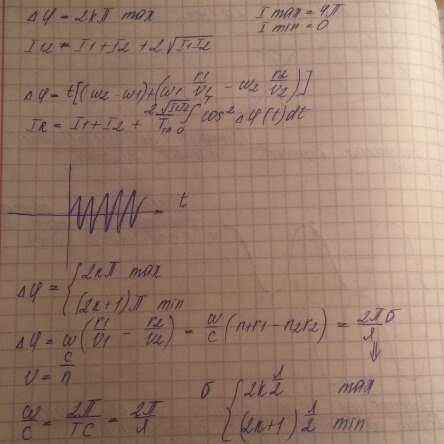 Δφ = 2kπ max I max = 4π
I min = 0
I12 = I1+I2 + 2√I1I2
Δφ = t[(ω2 - ω1)+(ω1 r1/v1 - ω2 r2/v2)]
IR = I1+I2 + 2√I1I2/T ∫ cos² Δφ(t)dt
t
Δφ = { 2kπ max
(2k+1)π min
Δφ = ω(r1/v1 - r2/v2) = ω/c (n1r1 - n2r2) = 2π/λ δ
v = c/n
ω/c = 2π/TC = 2π/λ
δ { 2k λ/2 max
(2k+1) λ/2 min